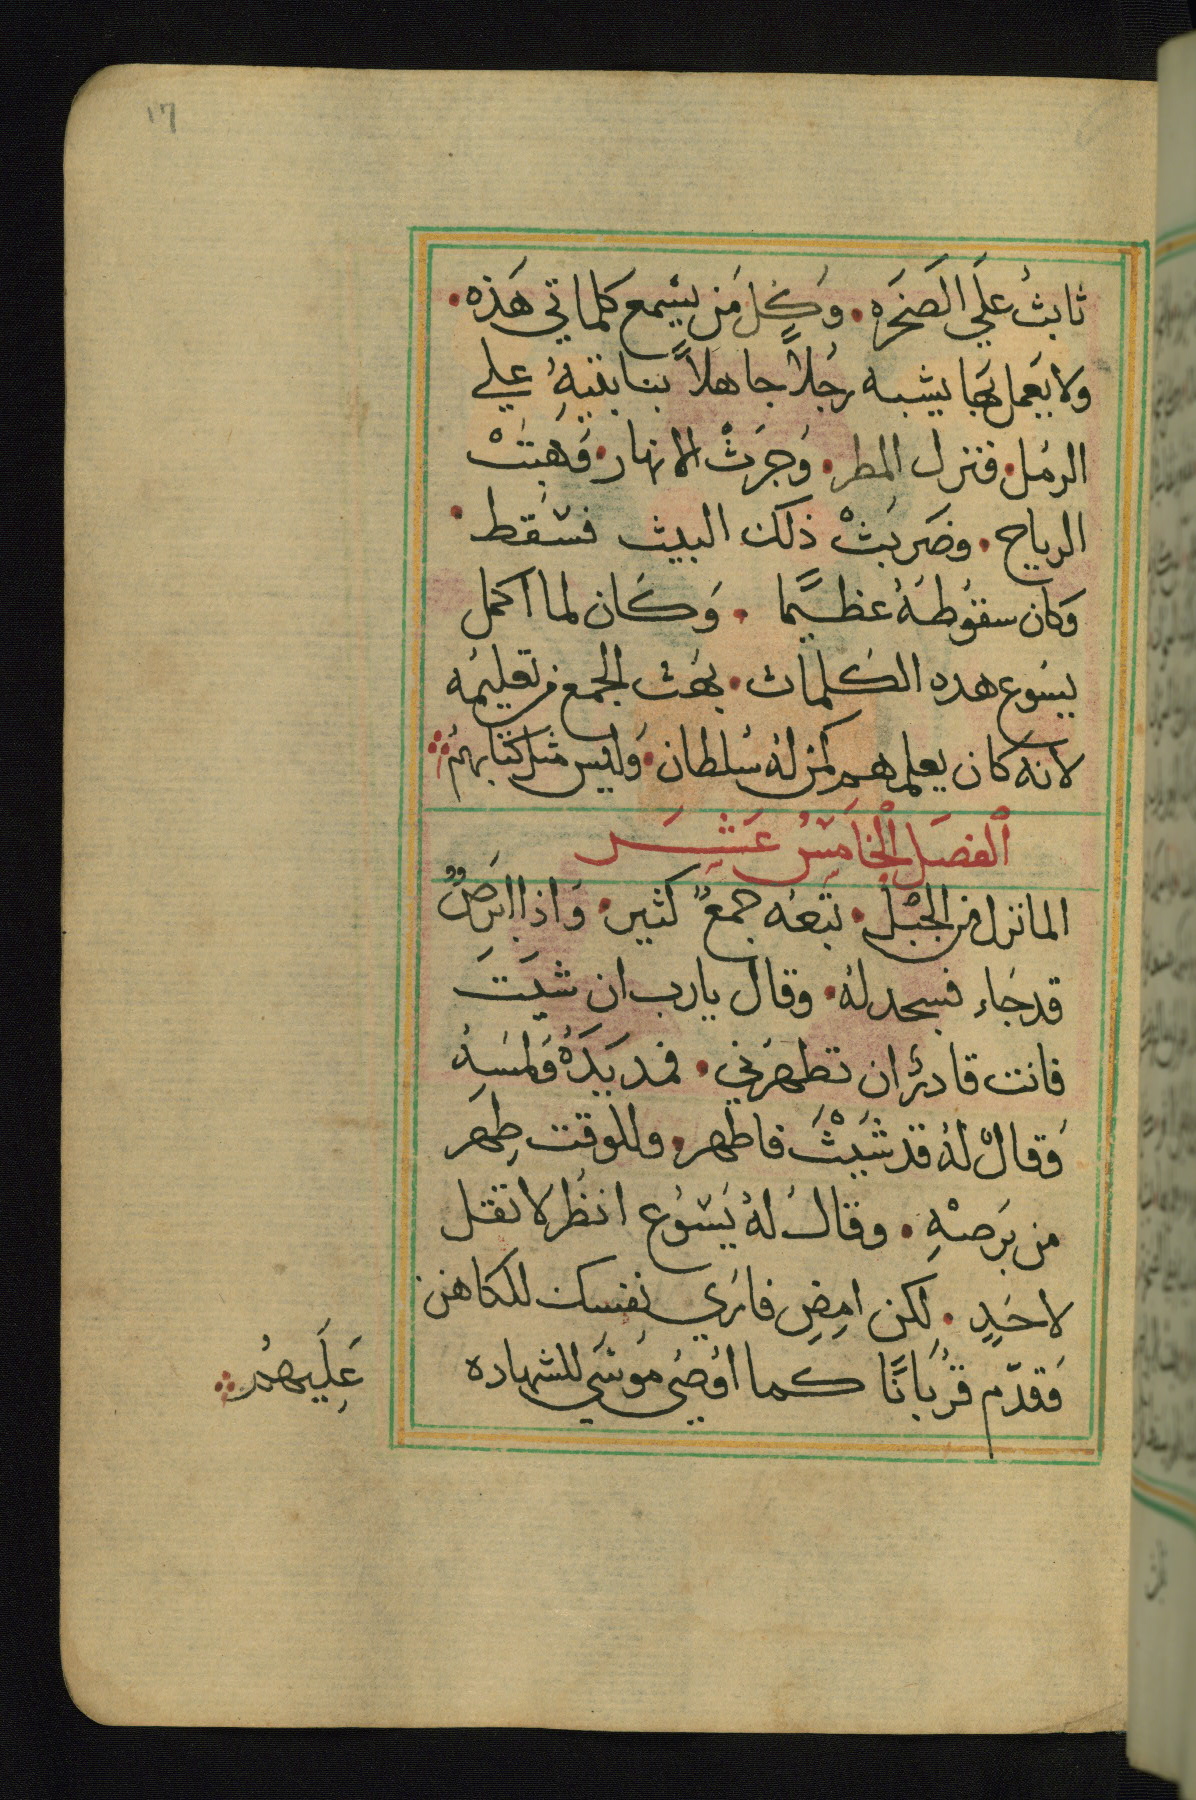 ١٦
ثابتُ علَي الصَخرَه. وَكُل مَن يسْمع كلماتي هَذه.
ولا يعَمل بَها يشبه رجُلاً جاهلاً بنا بيتهُ علي
الرمُل. فنزل المطر. وَجرَتْ الانهار. وَهَبتْ
الرياح. وضَربَتْ ذلك البيت فسَقط.
وَكان سقوُطهُ عظيمًا. وَكَان لما اكمل
يسَوع هده الكلمات. بهُت الجمع من تعليمه
لانهَ كان يعلمهم كمن لهُ سُلطان. وَليس مثل كتابهمُ
الفصَل الخامسُ عَشر
لما نزل من الجبل. تبعَه جمعٌ كثير. وَاذا ابَرصٌ
قد جَاء فسجد لهُ. وقال يارب ان شيَتَ
فانت قادرٌ ان تطهرَني. فمد يَدَهُ وَلمسَهُ
وَقالْ لهُ قد شَيتْ فاطهر. وللوقت طهَر
من بَرصهِ. وقالَ لهُ يَسُوع انظُر لا تقل
لاحَدٍ. لكن امضِ فارَي نفسك للكاهن
وَقدّم قُربانًا كما اوُصَي موسَي للشهاده
عَليهُم